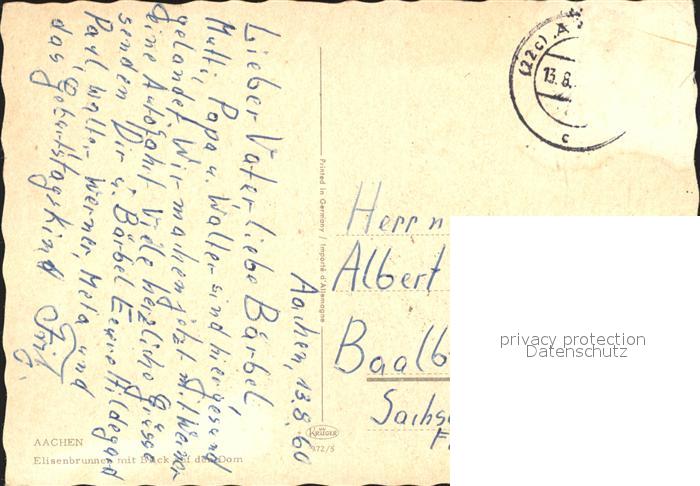 Aachen, 13.8.60
Lieber Vater liebe Bärbel,
Mutti, Papa u. Walter sind hier gesund
gelandet. Wir machen jetzt mit Werner
eine Autofahrt. Viele herzliche Grüsse
senden Dir u. Bärbel Eure Hildegard
Paul, Walter, Werner, Meta und
das Geburtstagskind
Printed in Germany / Importé d'Allemagne
(22c) A
13.8.
c
Herrn
Albert
Baalb
Sachs
KRÜGER
972/5
AACHEN
Elisenbrunnen mit Blick auf den Dom
privacy protection
Datenschutz